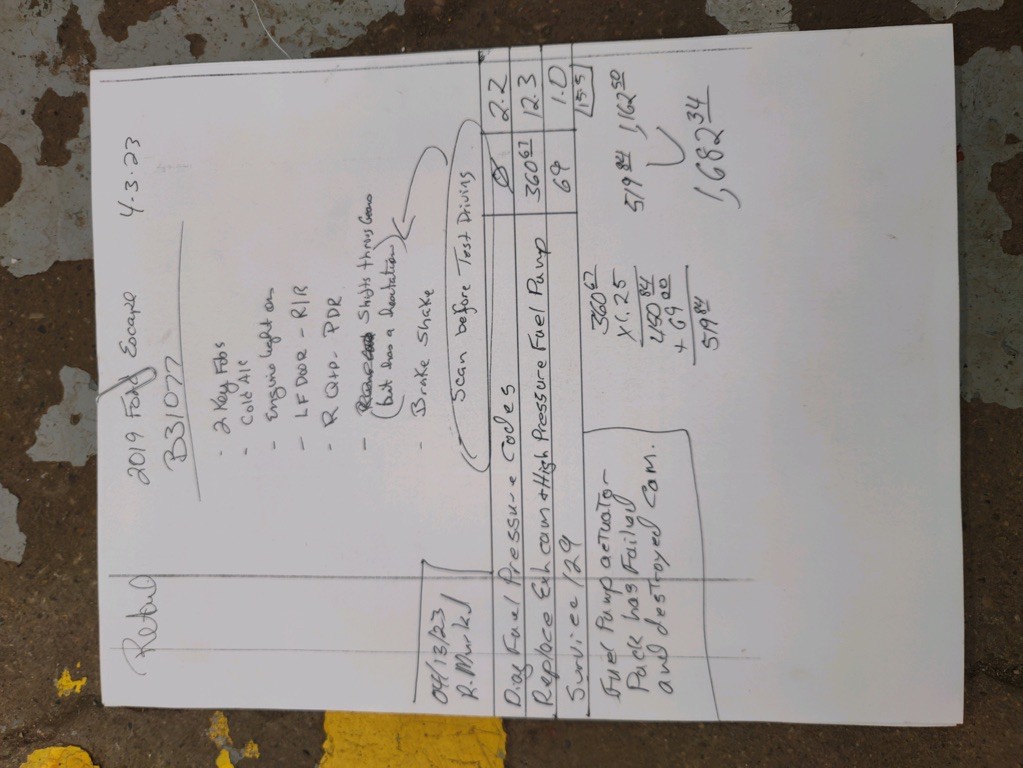 Retail
2019 Ford Escape 4-3-23
B31077
- 2 Key Fobs
- Cold A/C
- Engine light on
- LF DOOR - R/R
- R QTP - PDR
- Shifts thru Gears
(but has a hesitation)
- Brake Shake
Scan before Test Driving
04/13/23
R. Murkel
Diag Fuel Pressure Codes Ø 2.2
Replace Exh cam & High Pressure Fuel Pump 360 67 12.3
Survice / 29 69 1.0
15.5
Fuel Pump actuator
Puck has Failed
and destroyed Cam.
360 67
X 1.25
450 84
+ 69 00
519 84
519 84 1,162 50
1,682 34